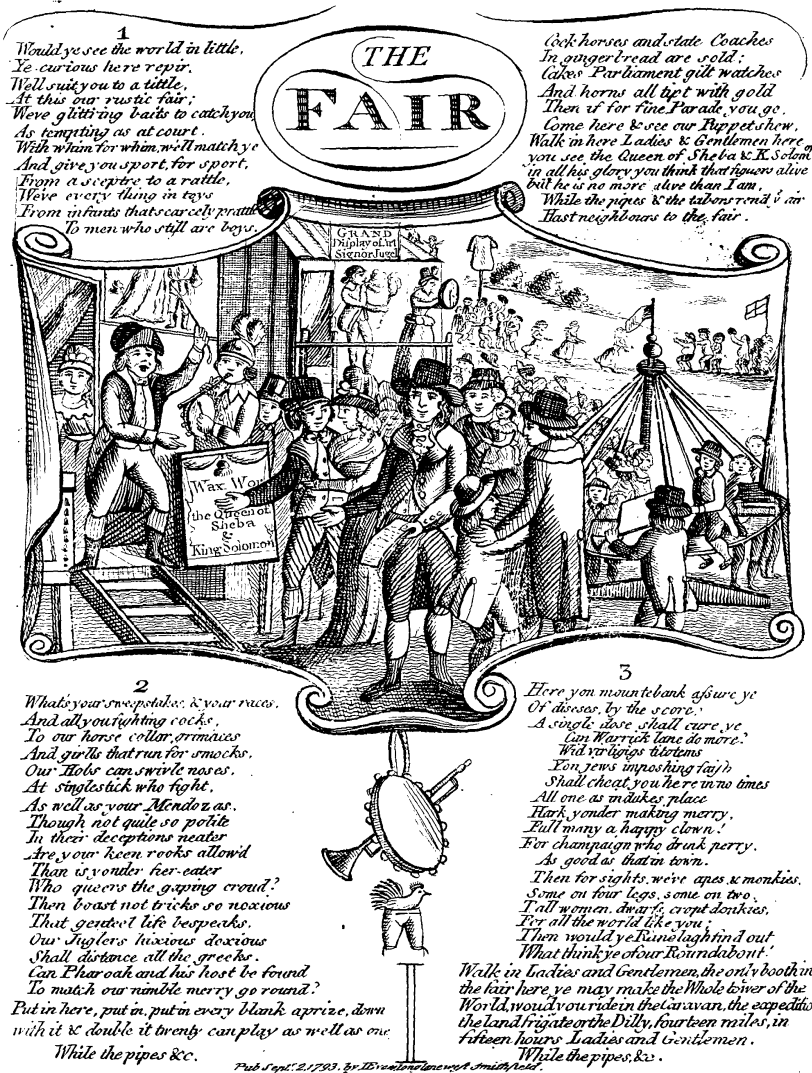 THE
FAIR
1
Would ye see the world in little,
Ye curious here repir,
Well suit you to a tittle,
At this our rustic fair;
Weve glittring baits to catch you
As tempting as at court.
With whim for whim, we'll match ye
And give you sport, for sport,
From a sceptre to a rattle,
Weve every thing in toys
From infants that scarcely prattle
To men who still are boys.
Cock horses and state Coaches
In gingerbread are sold;
Cakes Parliament gilt watches
And horns all tipt with gold
Then if for fine Parade you go,
Come here & see our Puppet shew,
Walk in here Ladies & Gentlemen here
you see the Queen of Sheba & K Solom
in all his glory you think that figuers alive
but he is no more alive than I am,
While the pipes & the tabors rend ye air
Hast neighbours to the fair.
GRAND
Display of Art
Signor Jugel
Wax Wor
the Queen of
Sheba
&
King Solomon
2
What's your sweepstakes, & your races,
And all you fighting cocks,
To our horse collar, grimaces
And girlls that run for smocks,
Our Hobs can swivle noses,
At singlestick who fight,
As well as your Mendozas,
Though not quite so polite
In their deceptions neater
Are your keen rooks allow'd
Than is yonder fier-eater
Who queers the gaping croud?
Then boast not tricks so noxious
That genteel life bespeaks,
Our Juglers hixious doxious
Shall distance all the greeks.
Can Pharoah and his host be found
To match our nimble merry go round?
Put in here, put in, put in every blank a prize, down
with it & double it twenty can play as well as one
While the pipes &c.
3
Here yon mountebank assure ye
Of diseses, by the score;
A single dose shall cure ye
Can Warrick lane do more?
Wid virligigs titotems
Yon jews imposhing faish
Shall cheat you here in no times
All one as in dukes place
Hark yonder making merry,
Full many a happy clown!
For champaign who drink perry,
As good as that in town.
Then for sights, we're apes, & monkies,
Some on four legs, some on two,
Tall women, dwarfs, cropt donkies,
For all the world like you;
Then would ye Ranelagh find out
What think ye of our Roundabout!
Walk in Ladies and Gentlemen, the only booth in
the fair here, ye may make the Whole tower of the
World, woud you ride in the Caravan, the expeditio
the land frigate or the Dilly, fourteen miles, in
fifteen hours Ladies and Gentlemen.
While the pipes, &c.
Pub Sept. 2, 1793. by lane west Smithfield.